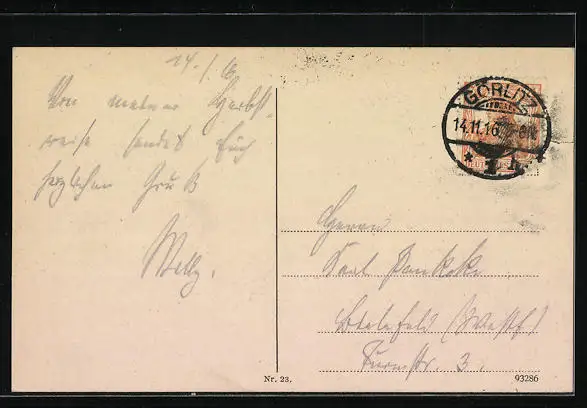 14./. 16
Von meiner Herbst-
reise sendet Euch
herzlichen Gruß
Willy.
GÖRLITZ
14.11.16
* 1 h.
Herrn
Karl Pankoke
Bielefeld (Westf.)
Turnstr. 3.
Nr. 23.
93286